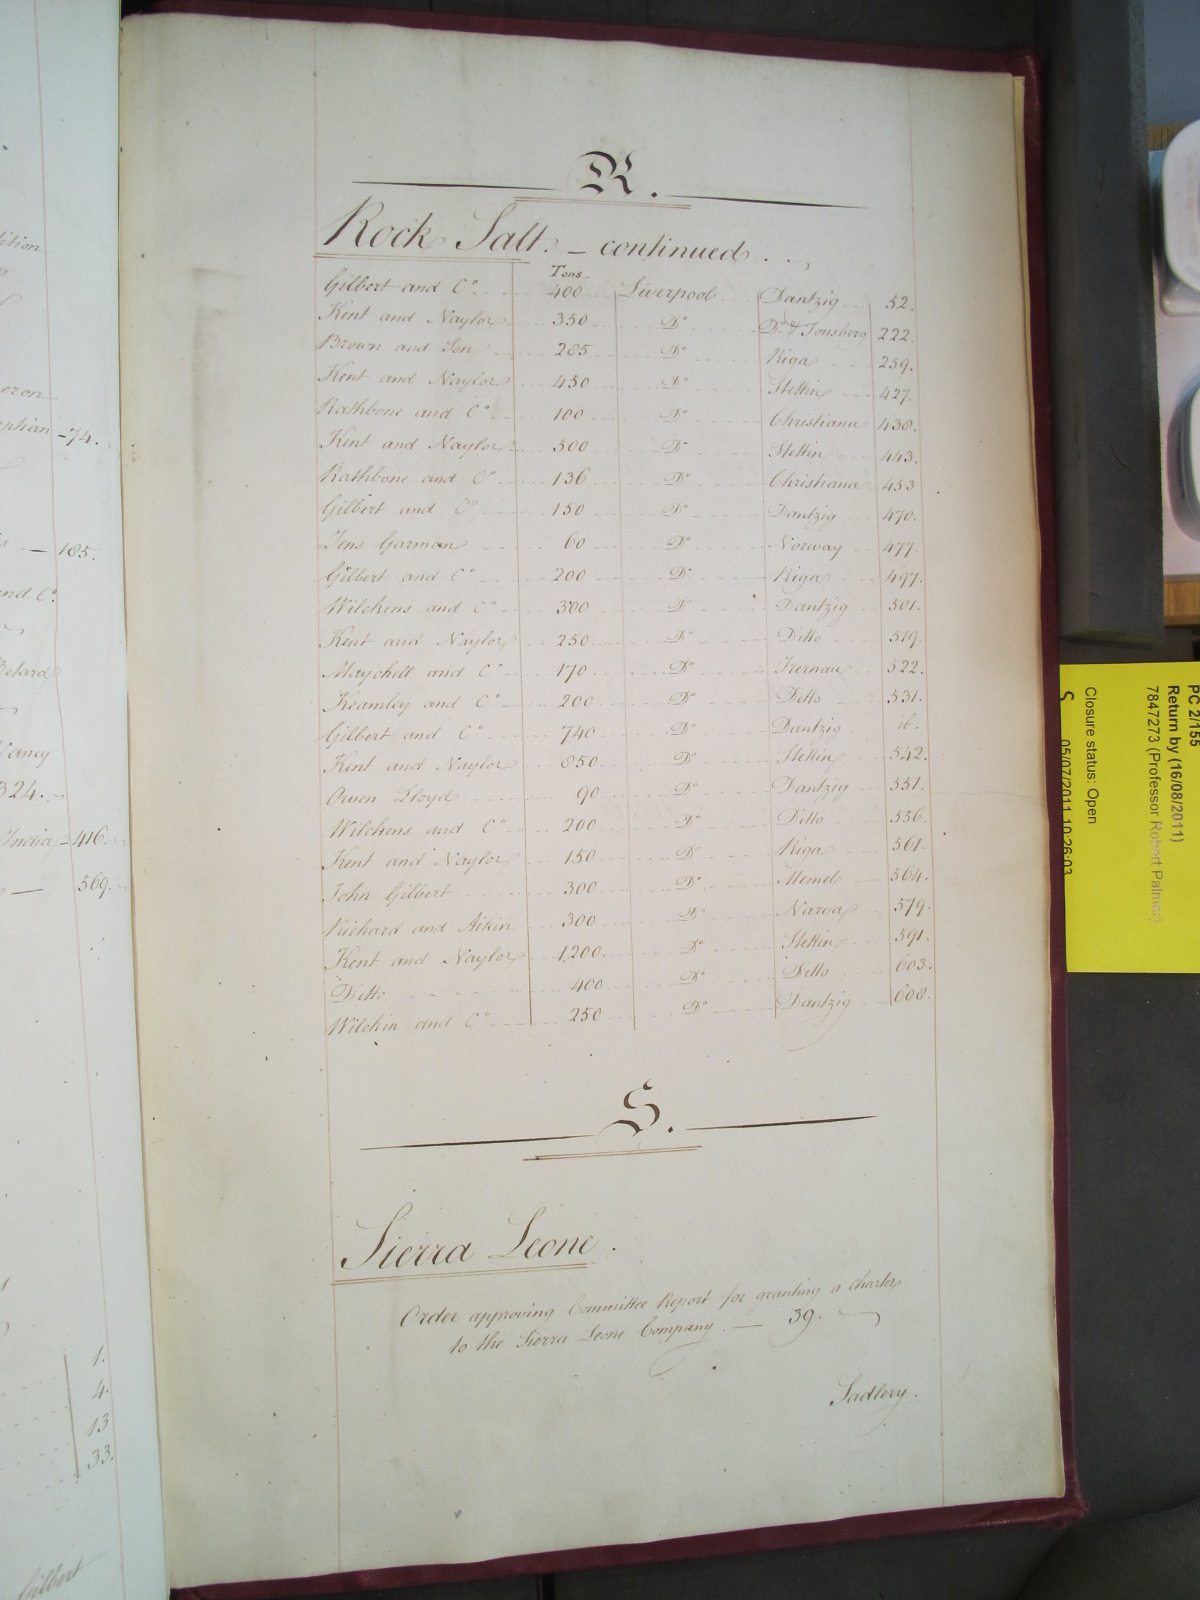 lition
eron
ptian - 74.
- 185.
and C.º
Betard
Nancy
324.
India - 416.
569.
1.
4.
13
33.
Gilbert
R.
Rock Salt. – continued.
Tons.
Gilbert and Cº 400 Liverpool Dantzig 52.
Kent and Naylor 350 Dº Dº & Tonsberg 222.
Brown and Son 285 Dº Riga 259.
Kent and Naylor 450 Dº Stettin 427.
Rathbone and Cº 100 Dº Christiana 438.
Kent and Naylor 500 Dº Stettin 443.
Rathbone and Cº 136 Dº Christiana 453
Gilbert and Cº 150 Dº Dantzig 470.
Jens Garman 60 Dº Norway 477.
Gilbert and Cº 200 Dº Riga 497.
Wilckens and Cº 300 Dº Dantzig 501.
Kent and Naylor 250 Dº Ditto 519.
Maychell and Cº 170 Dº 522.
Keamley and Cº 200 Dº Ditto 531.
Gilbert and Cº 740 Dº Dantzig ib.
Kent and Naylor 850 Dº Stettin 542.
Owen Lloyd 90 Dº Dantzig 551.
Wilckens and Cº 200 Dº Ditto 556.
Kent and Naylor 150 Dº Riga 561.
John Gilbert 300 Dº Memel 564.
Richard and Aikin 300 Dº Narva 579.
Kent and Naylor 1,200 Dº Stettin 591.
Ditto 400 Dº Ditto 603.
Wilckin and Cº 250 Dº Dantzig 608.
S.
Sierra Leone.
Order approving Committee Report for granting a Charter
to the Sierra Leone Company. — 39.
Sadlery.
PC 2/155
Return by (16/08/2011)
7847273 (Professor Robert Palmer)
Closure status: Open
05/07/2011 10:26:03